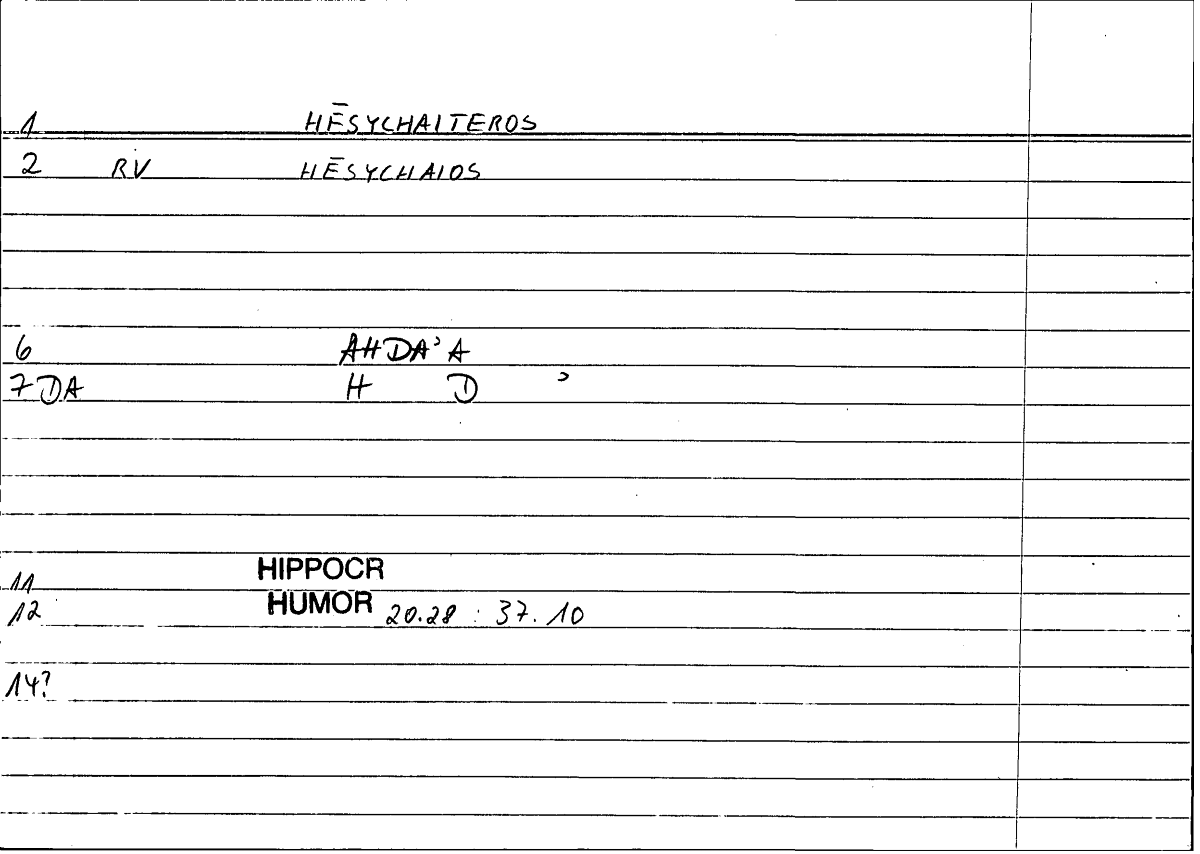 1 HĒSYCHAITEROS
2 RV HĒSYCHAIOS
6 AHDAʾA
7 DA H D ʾ
11 HIPPOCR
12 HUMOR 20.28 : 37.10
14?